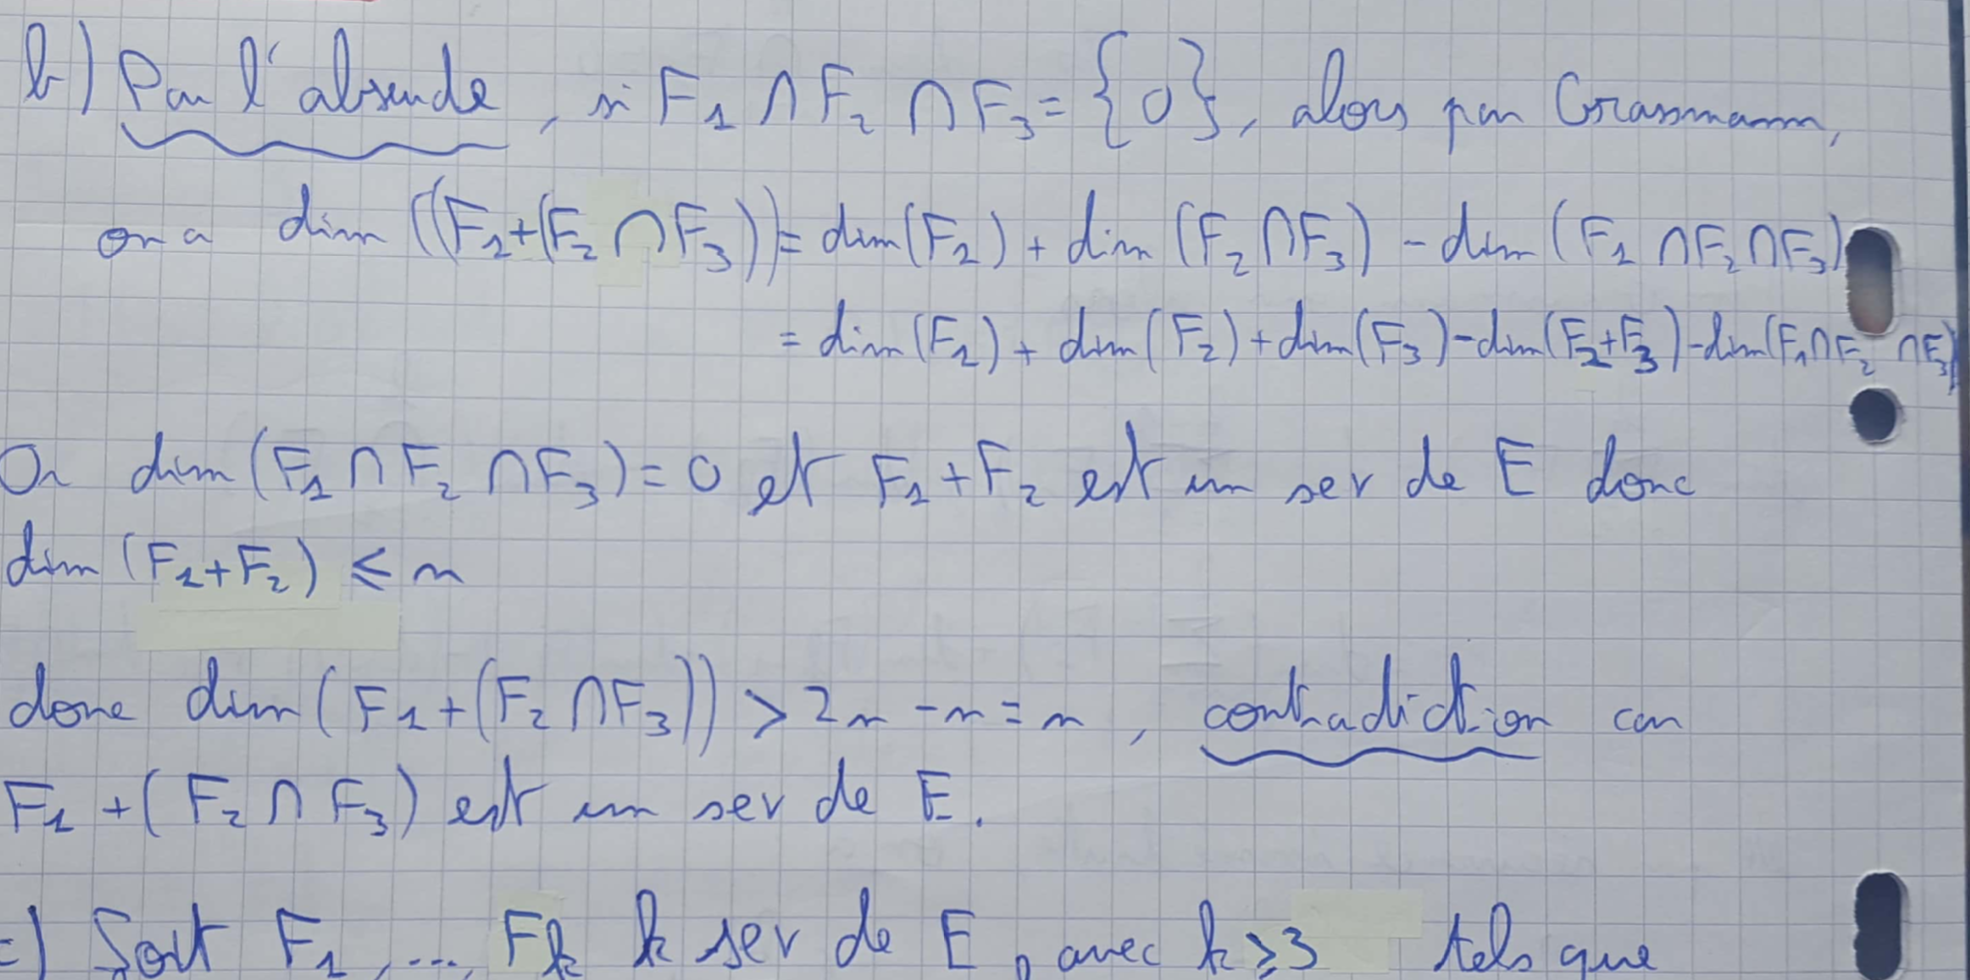 b) Par l'absurde, si F₁ ∩ F₂ ∩ F₃ = {0}, alors par Grassmann,
on a dim ((F₁+(F₂ ∩ F₃)) = dim(F₁) + dim (F₂ ∩ F₃) - dim (F₁ ∩ F₂ ∩ F₃)
= dim(F₁) + dim(F₂) + dim(F₃) - dim(F₂+F₃) - dim(F₁ ∩ F₂ ∩ F₃)
Or dim (F₁ ∩ F₂ ∩ F₃) = 0 et F₁+F₂ est un sev de E donc
dim (F₁+F₂) ⩽ n
donc dim (F₁+(F₂ ∩ F₃)) > 2n - n = n, contradiction car
F₁ + (F₂ ∩ F₃) est un sev de E.
c) Soit F₁, ..., Fk k sev de E, avec k ⩾ 3 tels que